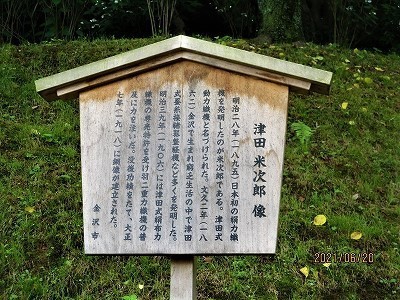 津田 米次郎 像
明治二八年（一八九五）日本初の絹力織
機を発明したのが米次郎である。津田式
動力織機と名づけられた。文久二年（一八
六二）金沢で生まれ窮乏生活の中で津田
式糸繰機整経機など多くを発明した。
明治三九年（一九〇六）には津田式絹布力
織機の専売特許を受け羽二重力織機の普
及に力を注いだ。没後功績をたて、大正
七年（一九一八）に銅像が建立された。
金沢市
2021/06/20